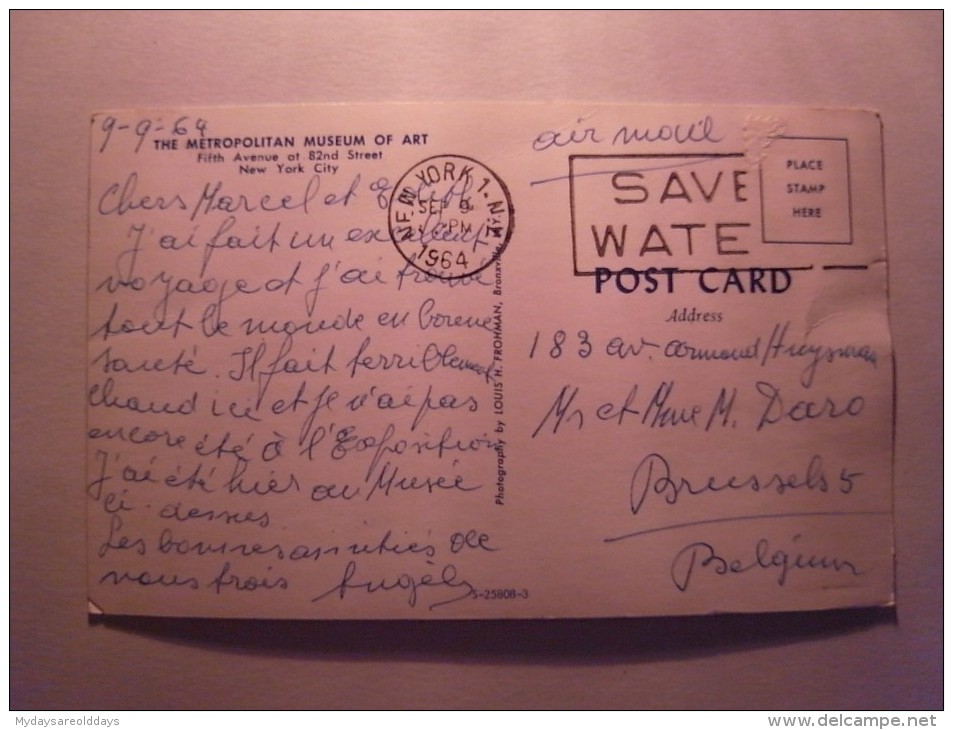 9-9-64
THE METROPOLITAN MUSEUM OF ART
Fifth Avenue at 82nd Street
New York City
Chers Marcel et
J'ai fait un excellent
voyage et j'ai trouvé
tout le monde en bonne
santé. Il fait terriblement
chaud ici et je n'ai pas
encore été à l'Exposition
J'ai été hier au Musée
ci-dessus
Les bonnes amitiés de
nous trois Angèle
S-25808-3
Photography by LOUIS H. FROHMAN, Bronxville, N.Y.
NEW YORK 1. N.Y.
SEP 9
PM
1964
air mail
SAVE
WATE
PLACE
STAMP
HERE
POST CARD
Address
183 av. Armand Huysmans
Mr et Mme M. Daro
Brussels 5
Belgium
Mydaysareolddays
www.delcampe.net